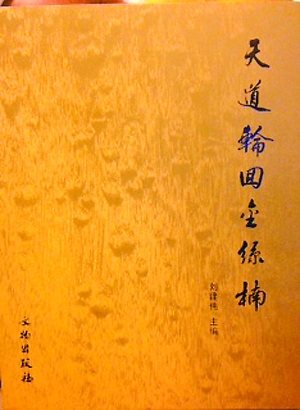 天道輪回金絲楠
刘建伟 主编
文物出版社